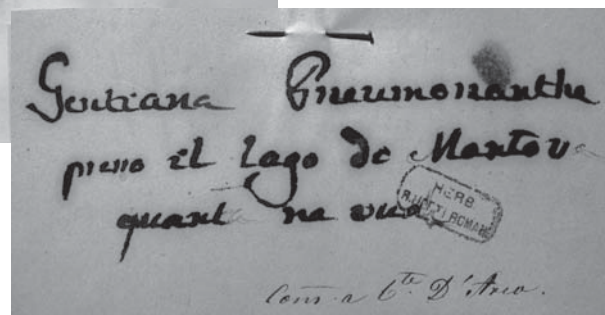 Gentiana Pneumonanthe
presso il Lago di Mantova
quant ne vuo
HERB
ROMA
Com. a Cte. D'Arco.